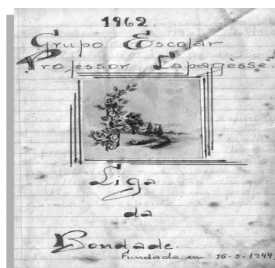 1962.
Grupo Escolar
Professor Lapagèsse
Liga
da
Bondade.
Fundada em 16-5-1944